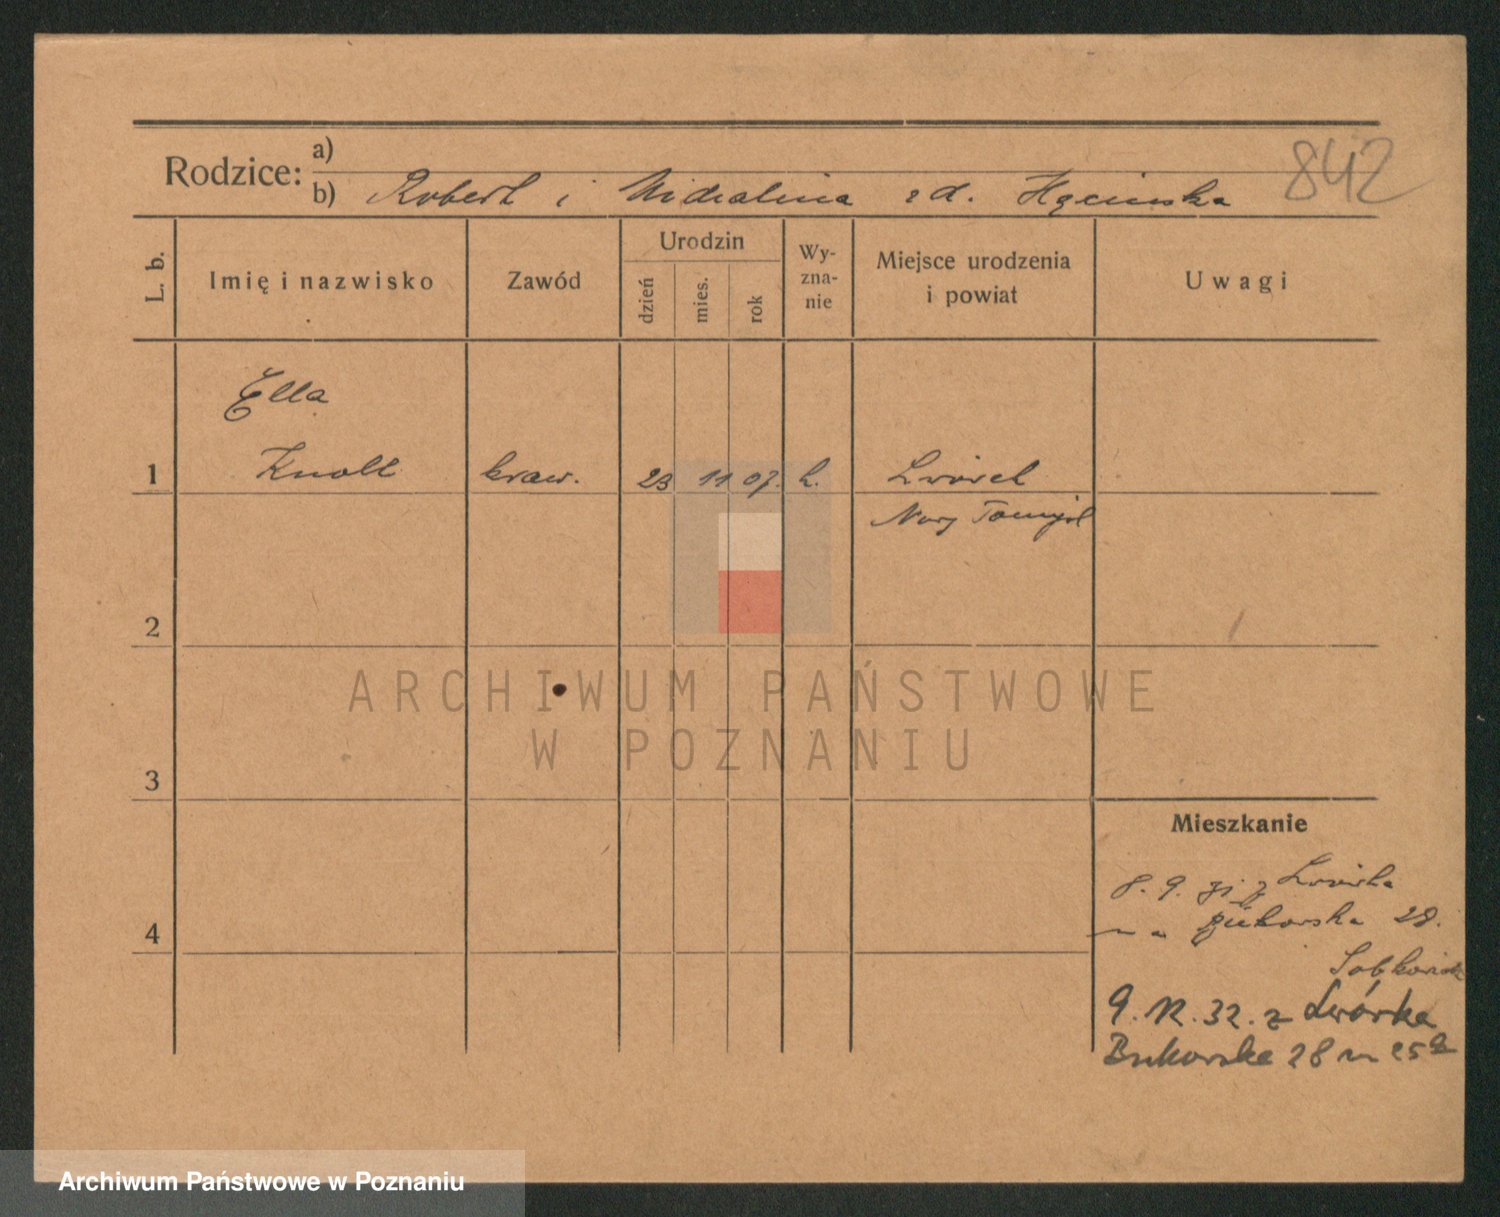 Rodzice: a)
b) Robert i zd.
842
L. b.
Imię i nazwisko
Zawód
Urodzin
dzień
mies.
rok
Wy-
zna-
nie
Miejsce urodzenia
i powiat
Uwagi
Ella
1 Knoll kraw. 23 11 07. L. Lwówek
Nowy Tomyśl
2
ARCHIWUM PAŃSTWOWE
W POZNANIU
3
Mieszkanie
8. 9. 31 z Lwówka
4
na Bukowska 28.
9. 12. 32. z Lwówka
Bukowska 28 m 25a
Archiwum Państwowe w Poznaniu